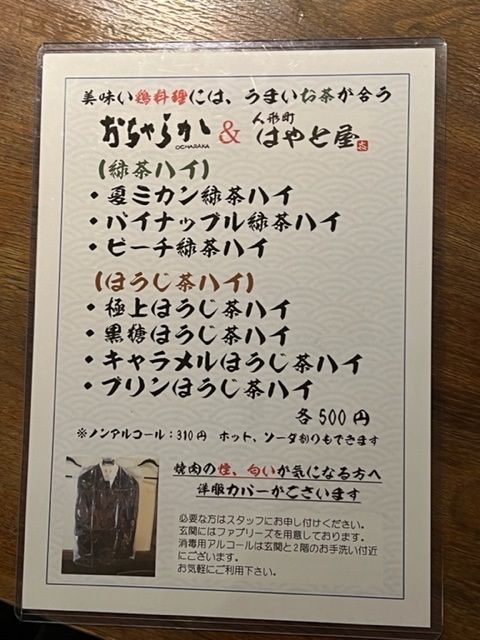 美味い鶏料理には、うまいお茶が合う
おちゃらか & 人形町 はやと屋
OCHARAKA
(緑茶ハイ)
・夏ミカン緑茶ハイ
・パイナップル緑茶ハイ
・ピーチ緑茶ハイ
(ほうじ茶ハイ)
・極上ほうじ茶ハイ
・黒糖ほうじ茶ハイ
・キャラメルほうじ茶ハイ
・プリンほうじ茶ハイ
各500円
※ノンアルコール:310円 ホット、ソーダ割りもできます
焼肉の煙、匂いが気になる方へ
洋服カバーがございます
必要な方はスタッフにお申し付けください。
玄関にはファブリーズを用意しております。
消毒用アルコールは玄関と2階のお手洗い付近
にございます。
お気軽にご利用下さい。